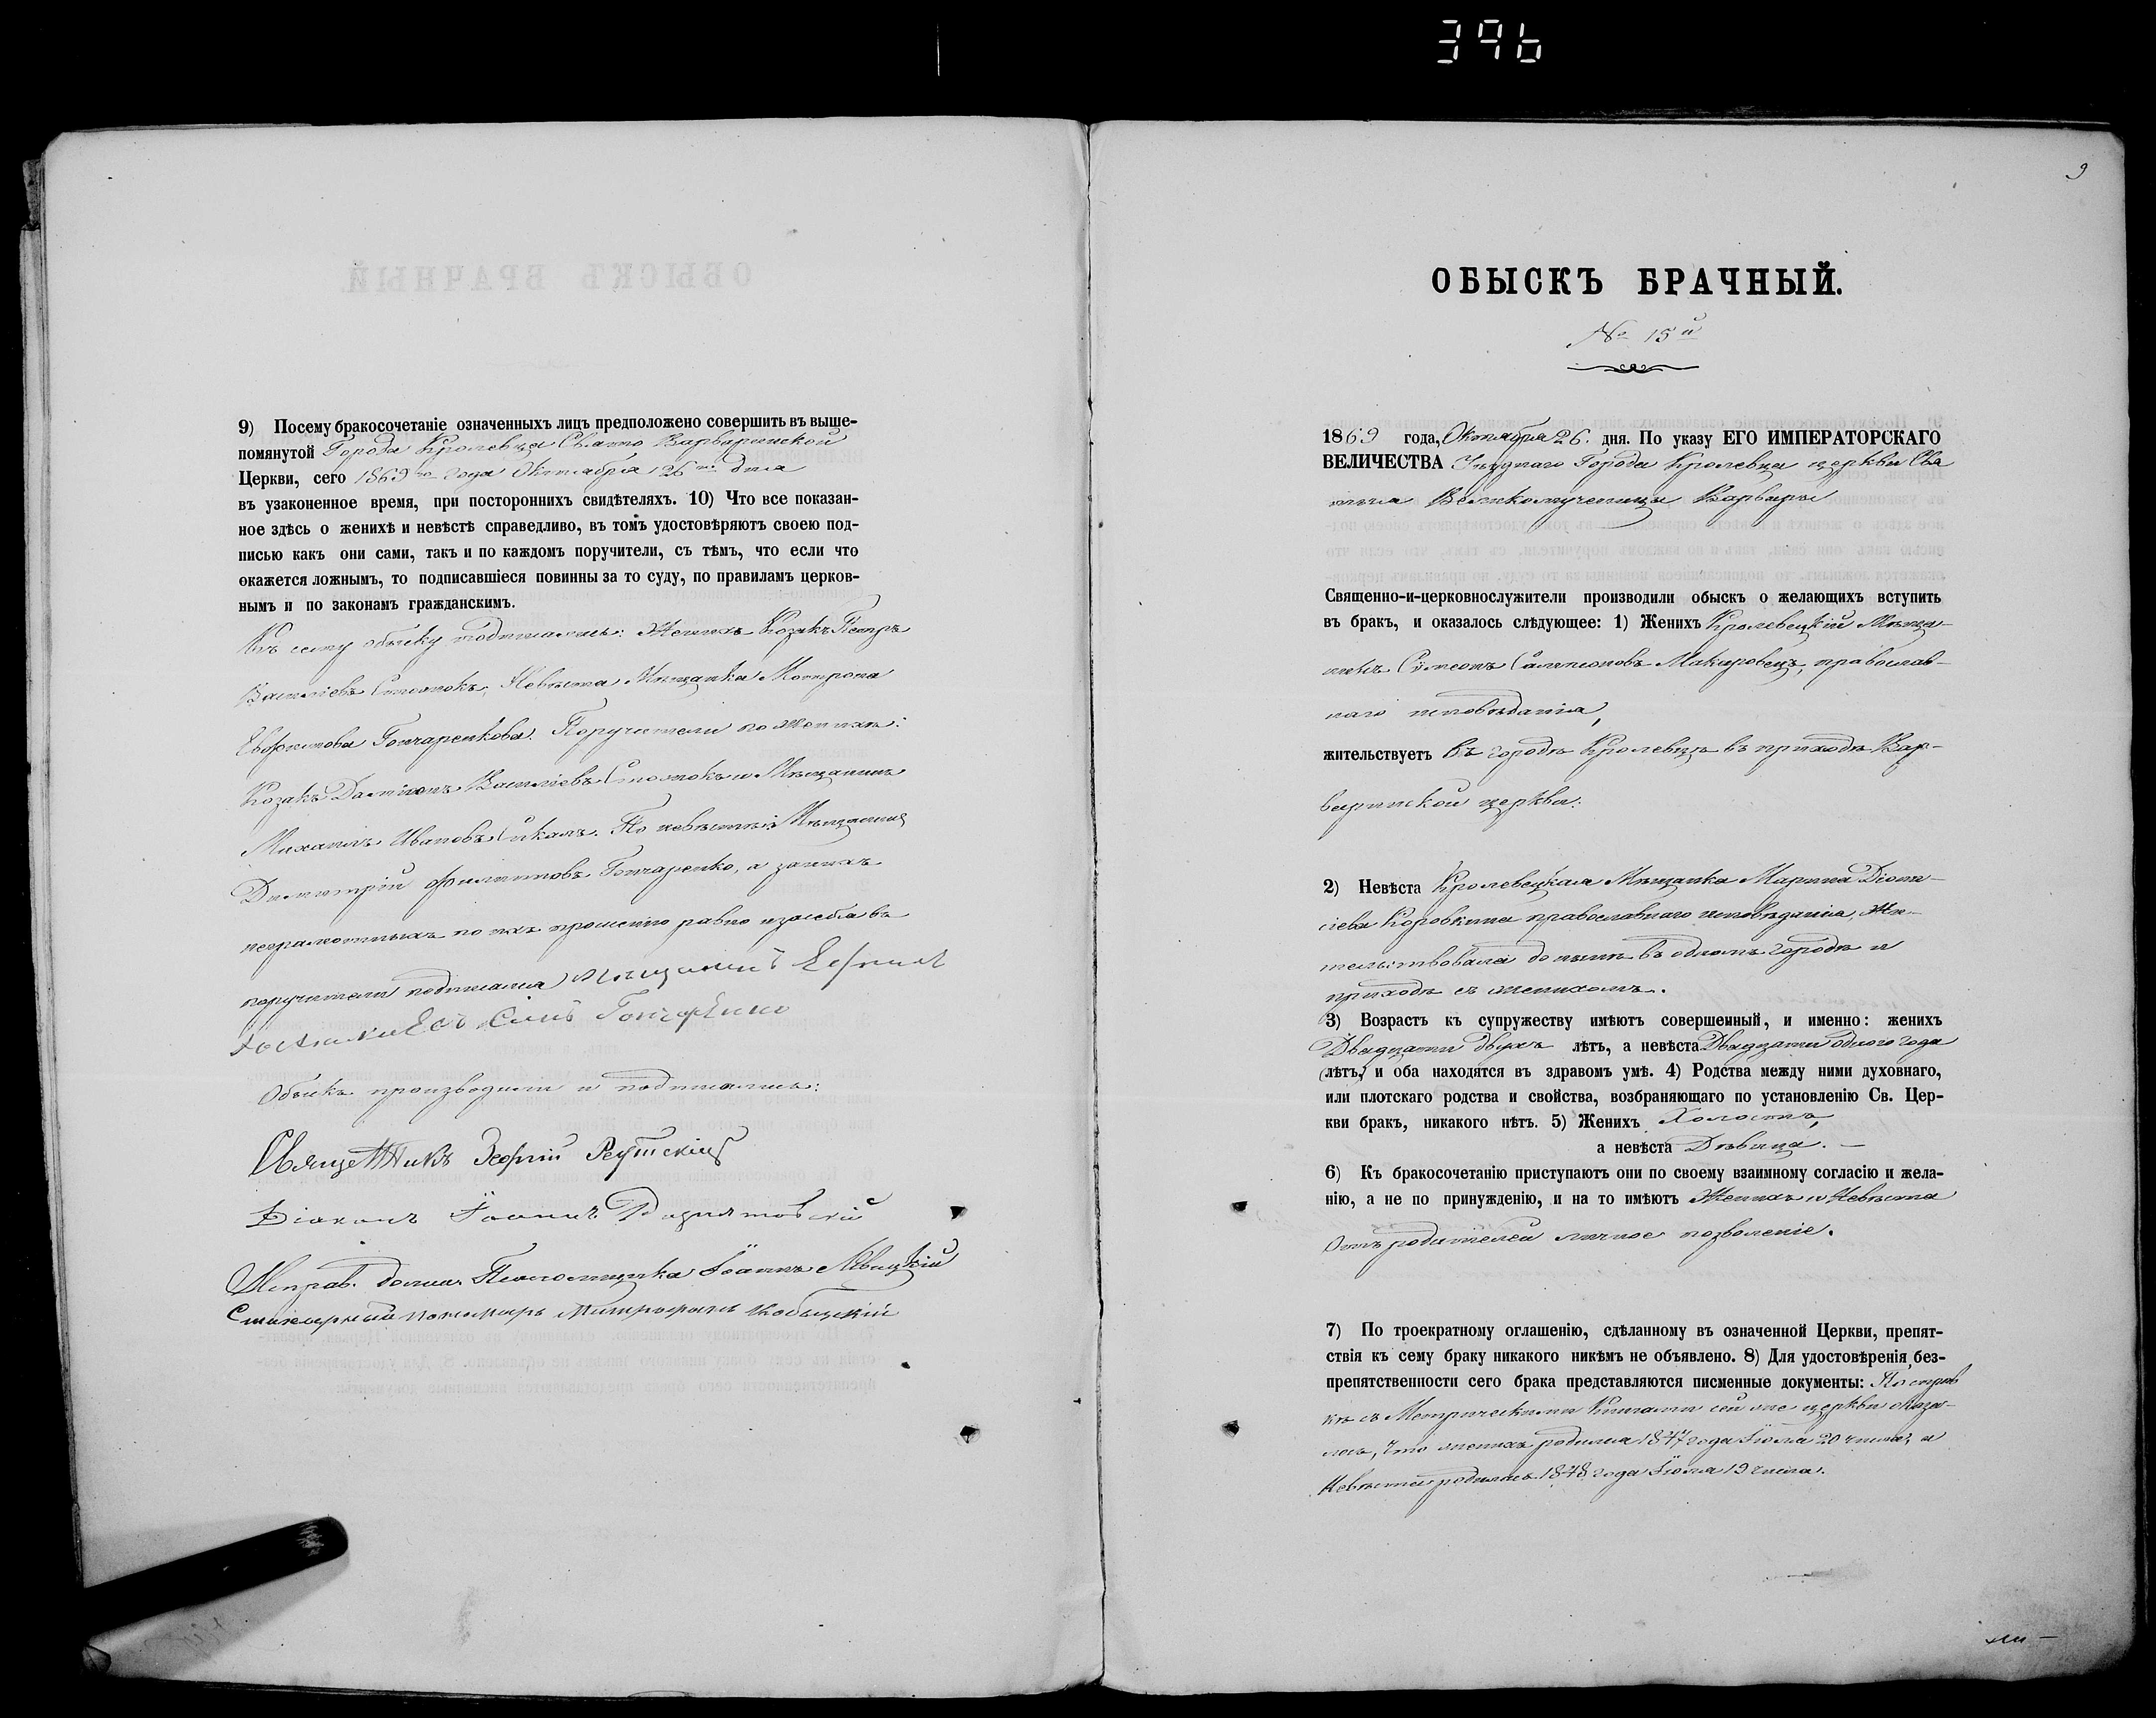 396
9) Посему бракосочетаніе означенныхъ лицъ предположено совершить въ выше-
помянутой Города Кролевца Свято Варваринской
Церкви, сего 1869го года Октября 26го дня
въ узаконенное время, при постороннихъ свидѣтеляхъ. 10) Что все показан-
ное здѣсь о женихѣ и невѣстѣ справедливо, въ томъ удостовѣряютъ своею под-
писью какъ они сами, такъ и по каждомъ поручители, съ тѣмъ, что если что
окажется ложнымъ, то подписавшіеся повинны за то суду, по правиламъ церков-
нымъ и по законамъ гражданскимъ.
Къ сему обыску подписались: Женихъ Козакъ Петръ
Василіевъ Невѣста Мѣщанка Мотрона
Гончаренкова. Поручители по женихѣ:
Козакъ Василіевъ и Мѣщанинъ
Михаилъ Ивановъ По невѣстѣ Мѣщанинъ
Димитрій Филиповъ Гончаренко, а за нихъ
неграмотныхъ по ихъ прошенію равно и за себя въ
поручители подписался мещанинъ
Сынъ
Обыскъ производили и подписались:
Священникъ Георгій Реутскій
Діаконъ Іоаннъ
Исправ. долж. Псаломщика Іоаннъ Левицкій
пономарь Митрофанъ
9
ОБЫСКЪ БРАЧНЫЙ.
№ 15й
1869 года, Октября 26. дня. По указу ЕГО ИМПЕРАТОРСКАГО
ВЕЛИЧЕСТВА Уѣзднаго Города Кролевца церкви Свя
тыя Великомученицы Варвары
Священно-и-церковнослужители производили обыскъ о желающихъ вступить
въ бракъ, и оказалось слѣдующее: 1) Женихъ Кролевецкій Мѣща-
нинъ Сѵмеонъ Сампсоновъ Макаровецъ, православ-
наго исповѣданія,
жительствуетъ въ городѣ Кролевцѣ въ приходѣ Вар-
варинской церкви.
2) Невѣста Кролевецкая Мѣщанка Марина Діони-
сіева Коровкина православнаго исповѣданія, Жи-
тельствовала донынѣ въ одномъ городѣ и
приходѣ съ женихомъ.
3) Возрастъ къ супружеству имѣютъ совершенный, и именно: женихъ
Двадцати двухъ лѣтъ, а невѣста Двадцати одного года
(лѣтъ) и оба находятся въ здравомъ умѣ. 4) Родства между ними духовнаго,
или плотскаго родства и свойства, возбраняющаго по установленію Св. Цер-
кви бракъ, никакого нѣтъ. 5) Женихъ Холостъ,
а невѣста Дѣвица. —
6) Къ бракосочетанію приступаютъ они по своему взаимному согласію и жела-
нію, а не по принужденію, и на то имѣютъ Женихъ и Невѣста
Отъ родителей личное позволеніе.
7) По троекратному оглашенію, сдѣланному въ означенной Церкви, препят-
ствія къ сему браку никакого никѣмъ не объявлено. 8) Для удостовѣренія без-
препятственности сего брака представляются писменные документы: По справ
кѣ съ Метрическими Книгами сей же церкви оказа-
лось, что женихъ родился 1847 года Іюля 20 числа, а
Невѣста родилась 1848 года Іюля 19 числа.